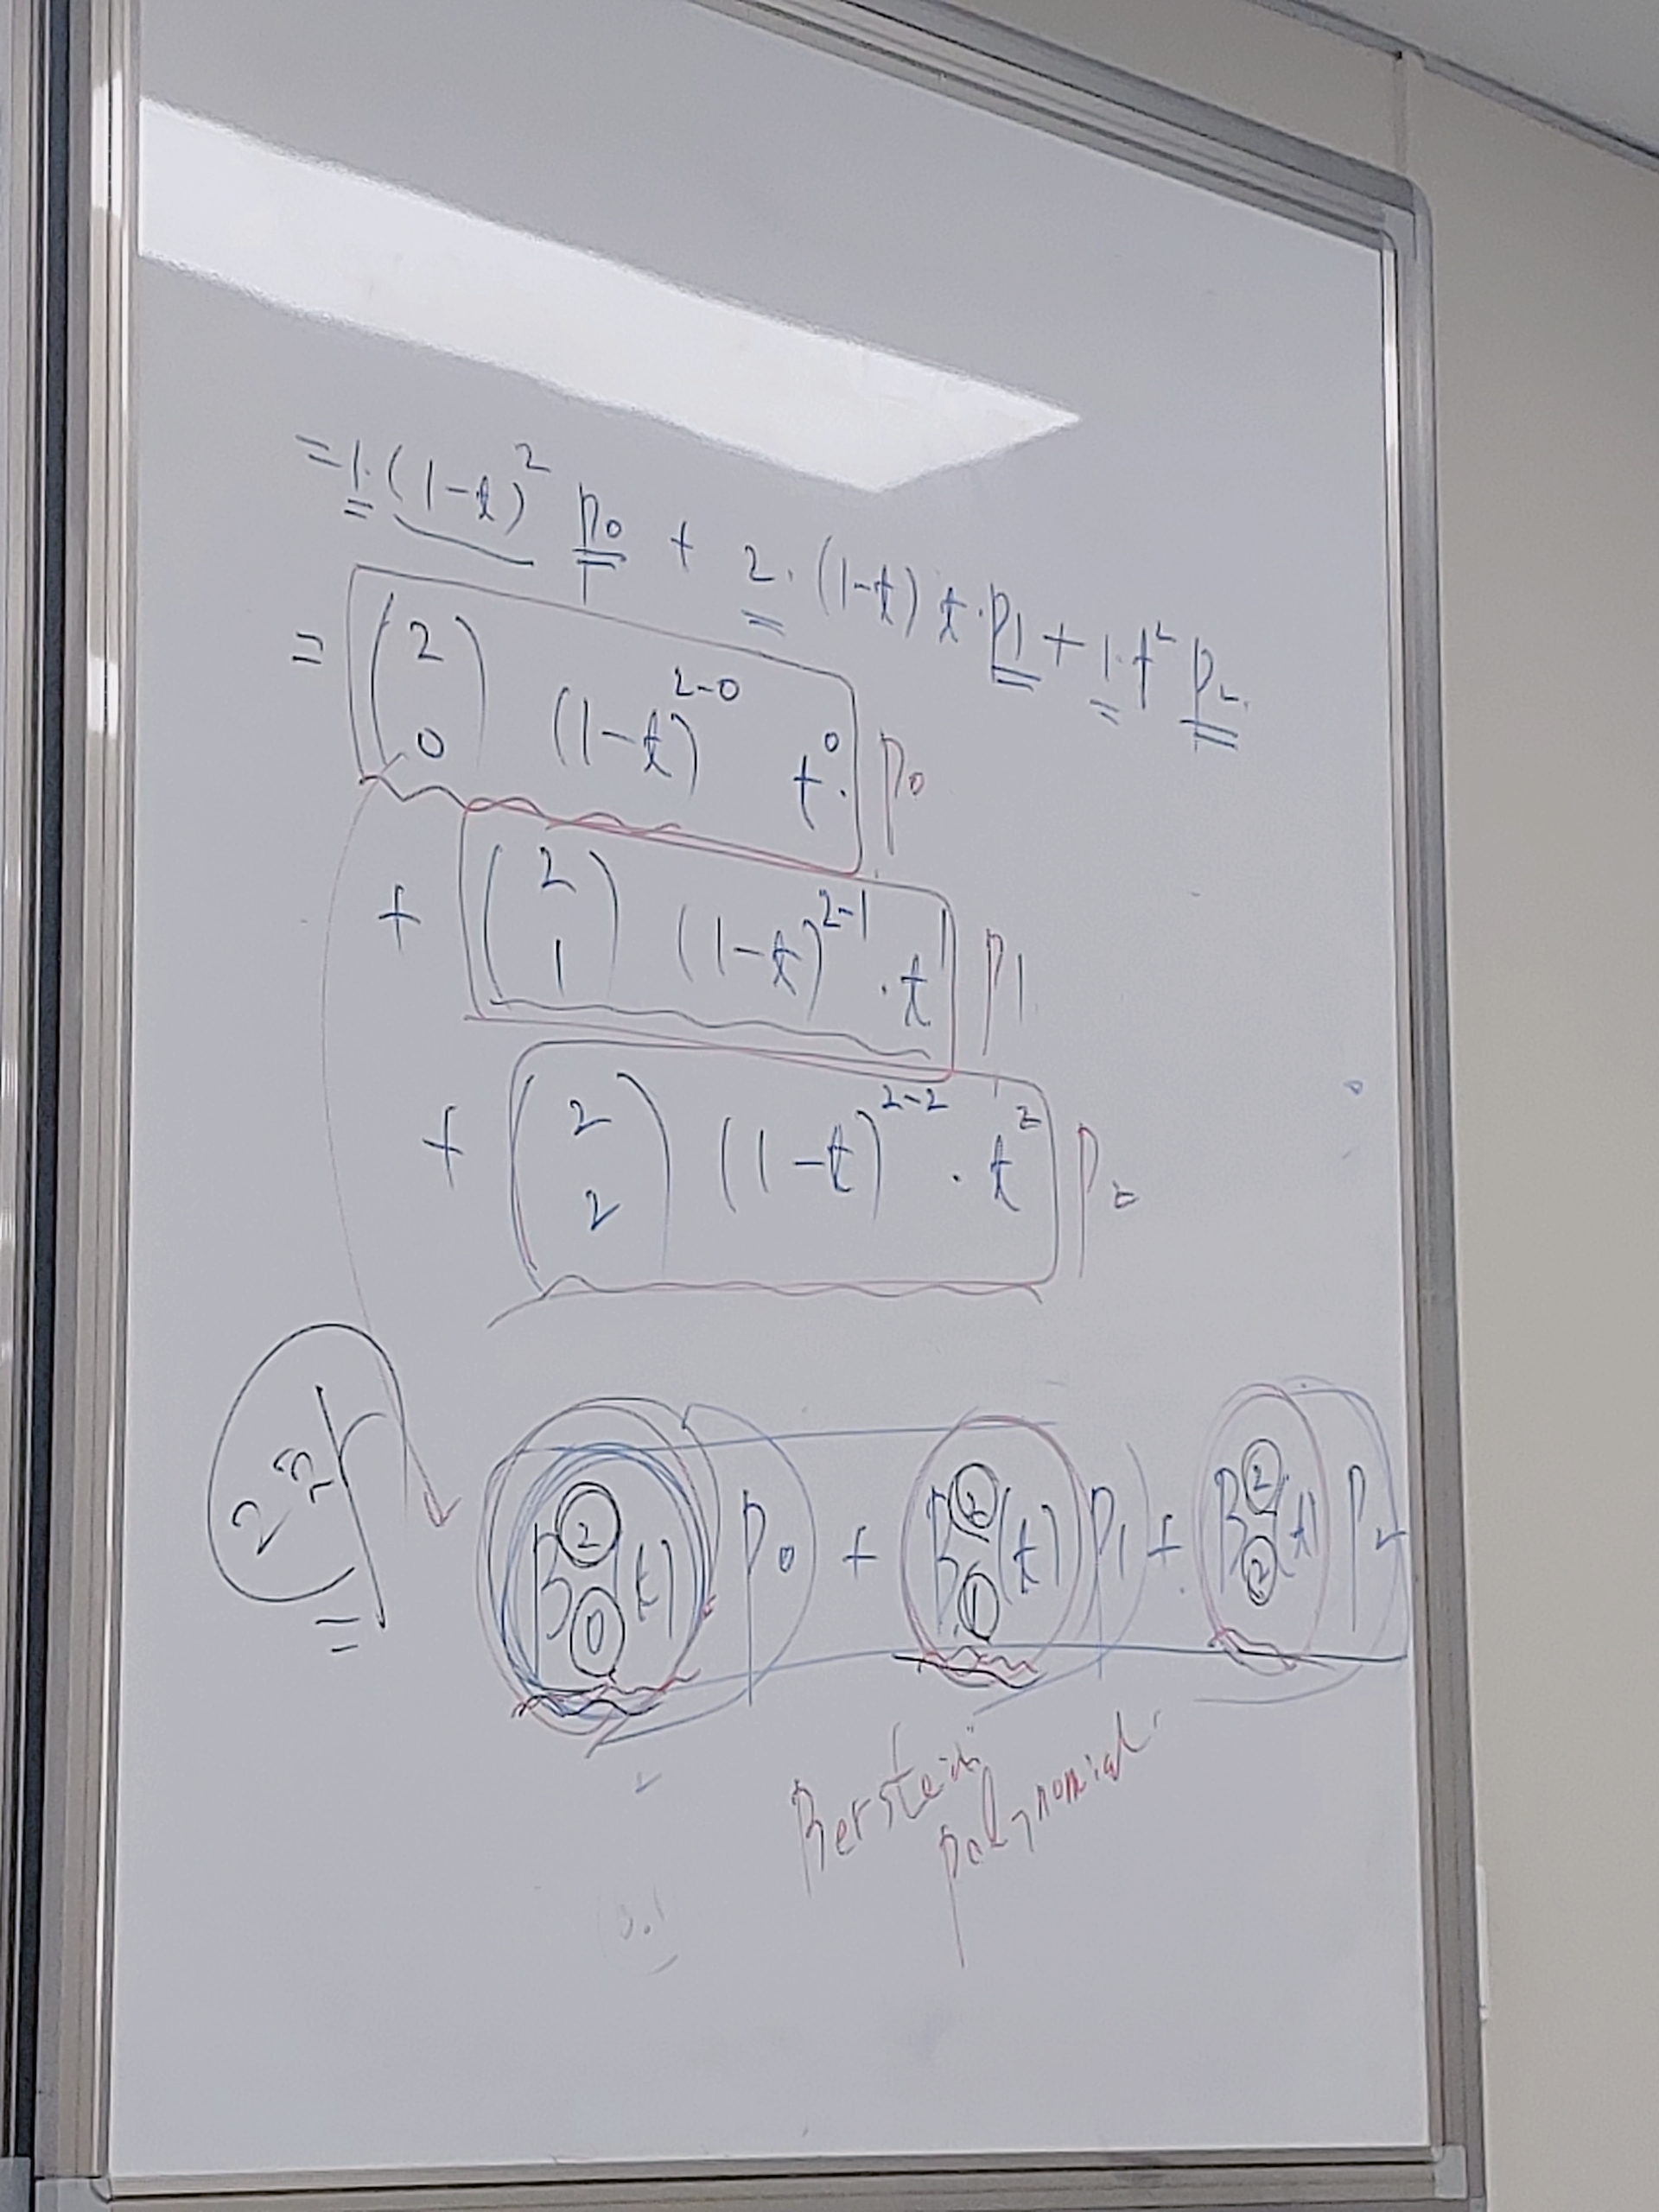 =1.(1-t)² p₀ + 2.(1-t) t.p₁ + 1.t² p₂.
= (2 0) (1-t)²⁻⁰ t⁰. p₀
+ (2 1) (1-t)²⁻¹ . t¹ p₁
+ (2 2) (1-t)²⁻² . t² p₂
B²₀(t) p₀ + B²₁(t) p₁ + B²₂(t) p₂
Berstein
polynomial